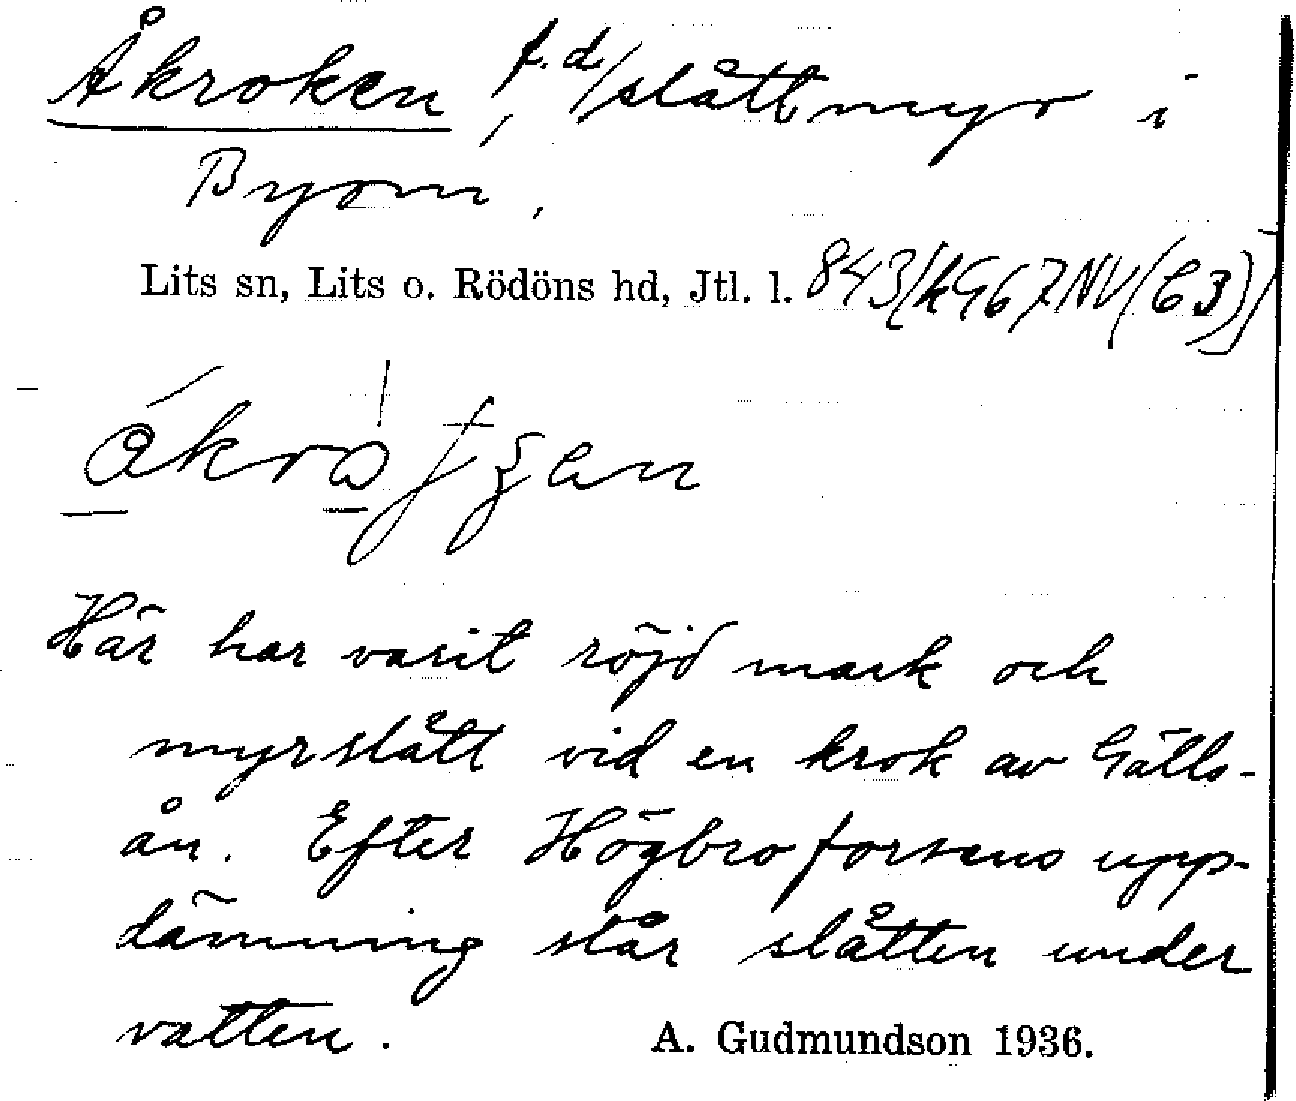 Åkroken, f.d/slåttmyr i
Byom,
Lits sn, Lits o. Rödöns hd, Jtl. l. 843/kG67NV(C3)
Här har varit röjd mark och
myrslått vid en krok av Gälls-
ån. Efter Högbroforsens upp-
dämning står slåtten under
vatten. A. Gudmundson 1936.